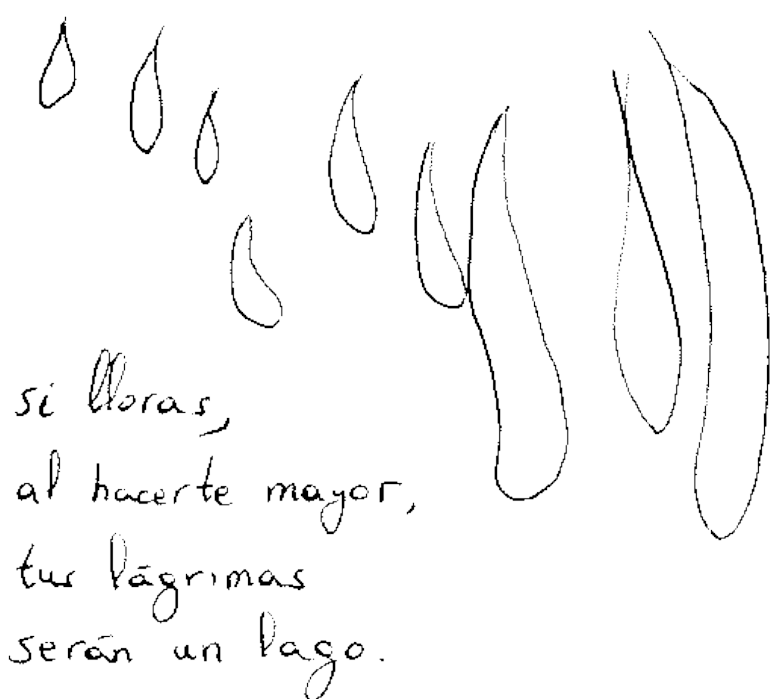 si lloras,
al hacerte mayor,
tus lágrimas
serán un lago.